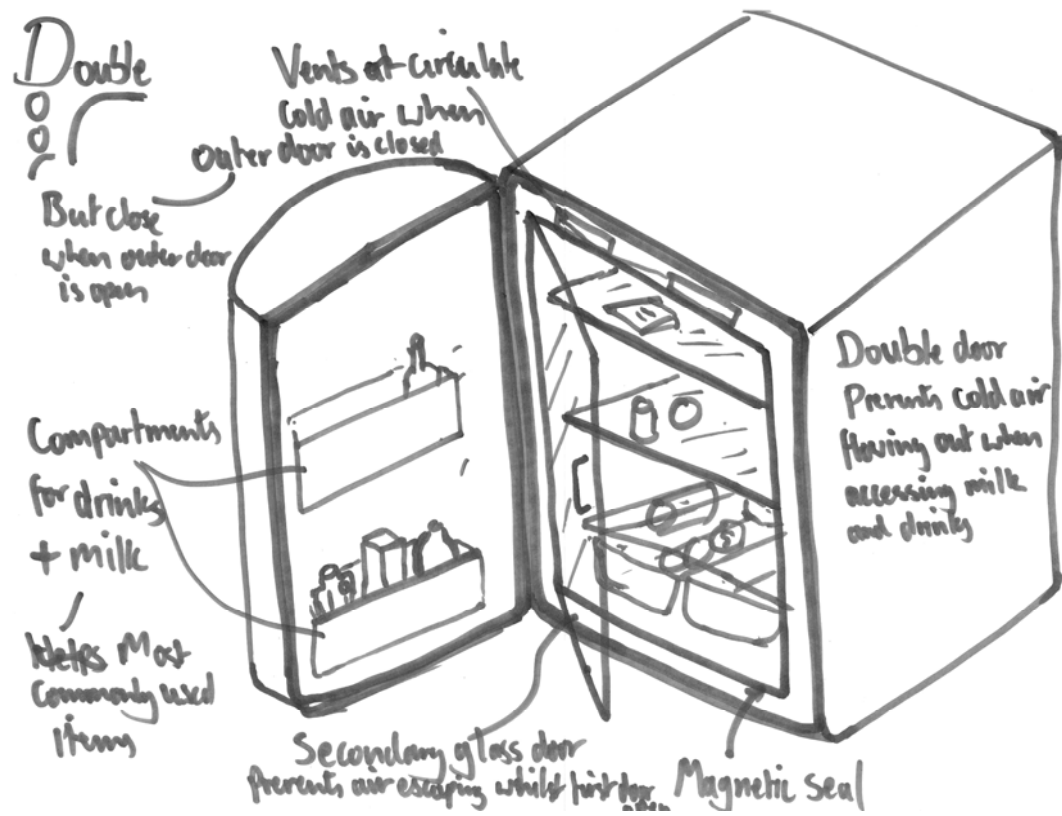 Double
Door
Vents at circulate
cold air when
outer door is closed
But close
when outer door
is open
Compartments
for drinks
+ milk
Most
commonly used
items
Double door
Prevents cold air
flowing out when
accessing milk
and drinks
Secondary glass door
Prevents air escaping whilst first door
open
Magnetic seal